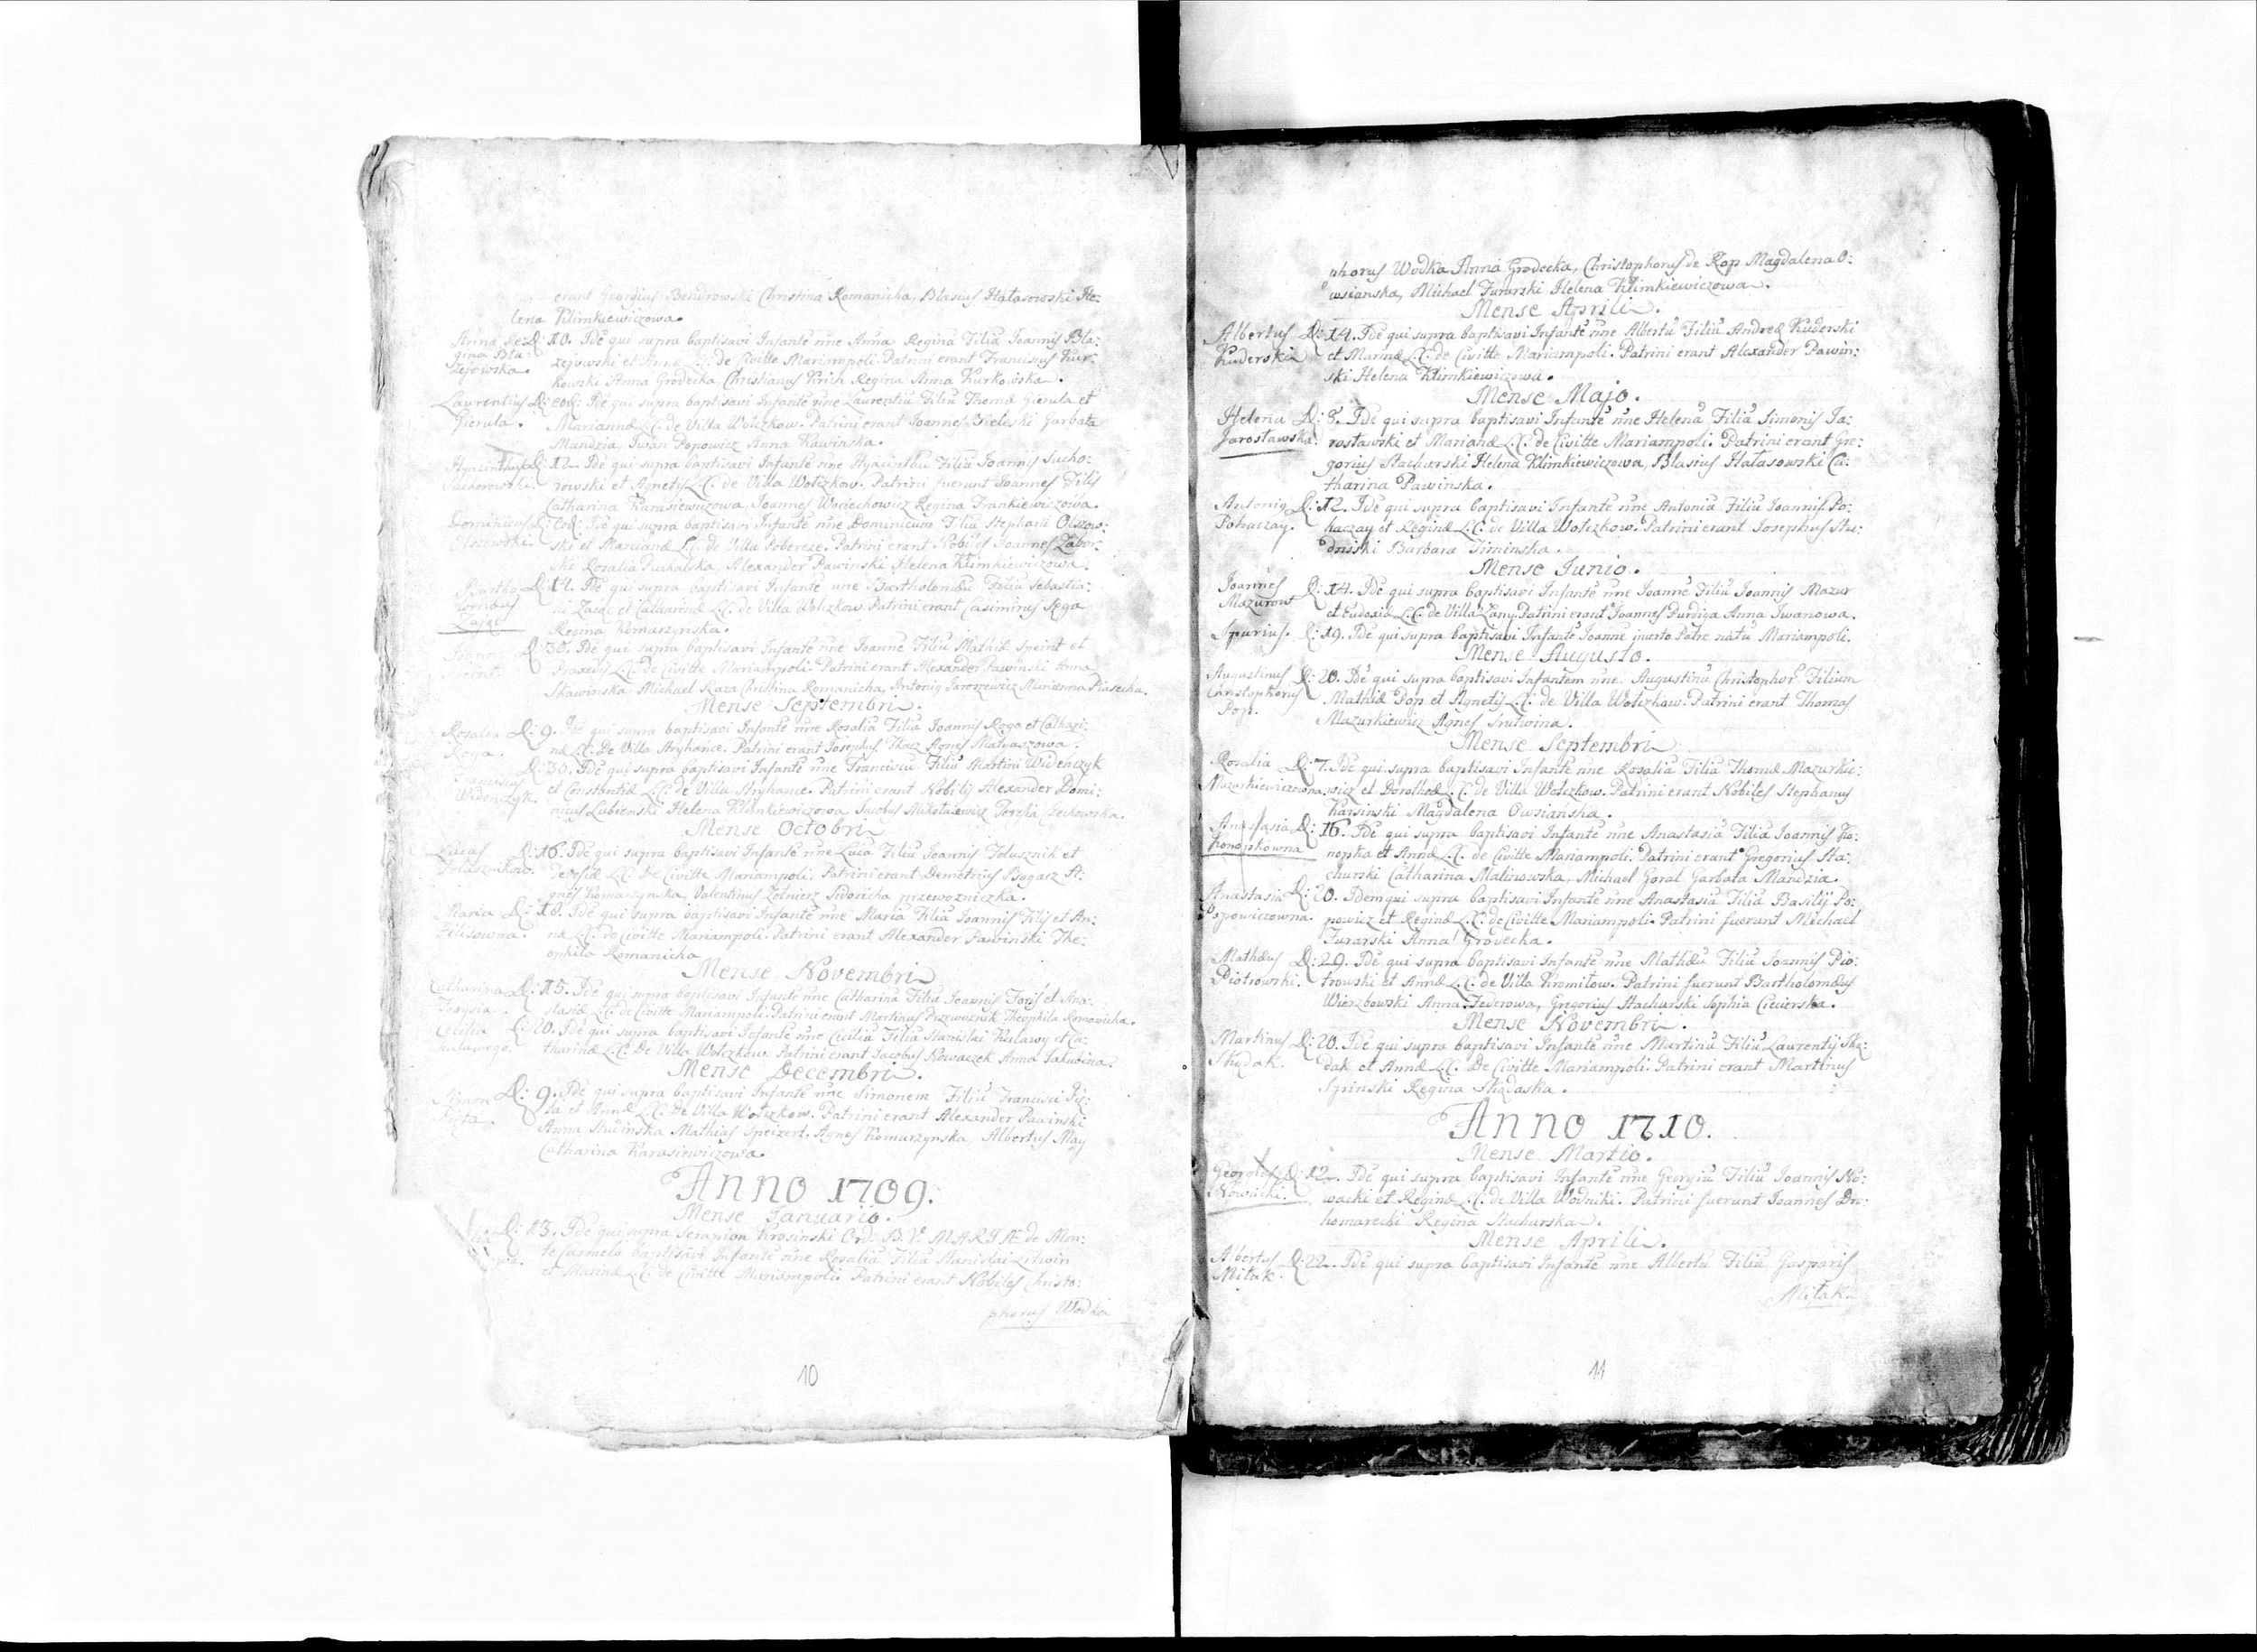 erant Georgius Bendrowski Christina Romanicha, Blasius Hałasowski He:
lena Klimkiewiczowa.
Anna Re:
gina Bła:
żejowska.
D: 10. Idē qui supra baptisavi Infantē nñe Anna Regina Filiā Joannis Bła:
żejowski et Annæ L.C. de Civitte Mariampoli. Patrini erant Franciscus Kur:
kowski Anna Grodecka Christianus Krich Regina Anna Kurkowska.
Laurentius
Gierula.
D: eod: Idē qui supra baptisavi Infantē nñe Laurentiū Filiū Thomæ Gierula et
Mariannæ L.C. de Villa Wołczkow. Patrini erant Joannes Bieleski Garbata
Mandzia, Iwan Popowicz Anna Kawinska.
Hyacinthus
Suchorowski.
D: 12. Idē qui supra baptisavi Infantē nñe Hyacinthū Filiū Joannis Sucho:
rowski et Agnetis L.C. de Villa Wołczkow. Patrini fuerunt Joannes Filis
Catharina Karasiewiczowa, Joannes Wociechowicz Regina Frankiewiczowa.
Dominicus
Olszewski.
D: eod: Idē qui supra baptisavi Infantē nñe Dominicum Filiū Stephani Olszow:
ski et Mariānæ L.C. de Villa Pobereze. Patrini erant Nobiles Joannes Zabor:
ski Rosalia Puchalska, Alexander Pawinski Helena Klimkiewiczowa.
Bartho
lomæus
Zając
D: 14. Idē qui supra baptisavi Infantē nñe Bartholomæū Filiū Sebastia:
ni Zając et Catharinæ L.C. de Villa Wołczkow. Patrini erant Casimirus Rega
Regina Komarzynska.
Joannes
D: 30. Idē qui supra baptisavi Infantē nñe Joannē Filiū Mathiæ Speint et
Praxedis L.C. de Civitte Mariampoli. Patrini erant Alexander Pawinski Anna
Sławinska Michael Raza Christina Romanicha, Antonig Jaroszewicz Marianna Piasecka.
Mense Septembri.
Rosalia
Roga.
D: 9. Idē qui supra baptisavi Infantē nñe Rosaliā Filiā Joannis Roga et Cathari:
næ L.C. De Villa Stryhance. Patrini erant Josephus Tkacz Agnes Matyaszowa.
Franciscus
Widenczyk.
D: 30. Idē qui supra baptisavi Infantē nñe Franciscū Filiū Martini Widenczyk
et Constantiæ L.C. de Villa Stryhance. Patrini erant Nobilis Alexander Domi:
nicus Lubienski Helena Klimkiewiczowa Jacobus Mikołaiewicz Terezia Czechowska.
Mense Octobri
Lucas
D: 16. Idē qui supra baptisavi Infantē nñe Lucā Filiū Joannis Tołusznik et
Teressæ L.C. De Civitte Mariampoli. Patrini erant Demetrius Bogacz A:
gnes Komarzynska, Valentinus Zołnierz Sidoricha przewozniczka.
Maria
Filisowna.
D: 18. Idē qui supra baptisavi Infantē nñe Mariā Filiā Joannis Filis et An:
næ L.C. de Civitte Mariampoli. Patrini erant Alexander Pawinski The:
ophila Romanicha
Mense Novembri
Catharina
Torysia.
D: 15. Idē qui supra baptisavi Infantē nñe Catharinā Filiā Joannis Toris et Ana:
stasiæ L.C. de Civitte Mariampoli. Patrini erant Martinus Przewoznik Theophila Romanicha.
Cecilia
Kulawego.
D: 20. Idē qui supra baptisavi Infantē nñe Ceciliā Filiā Stanislai Kulawy et Ca:
tharinæ L.C. De Villa Wołczkow. Patrini erant Jacobus Nowaczek Anna Jakubina.
Mense Decembri.
Simon
Pięta.
D: 9. Idē qui supra baptisavi Infantē nñe Simonem Filiū Francisci Pię:
ta et Annæ L.C. De Villa Wołczkow. Patrini erant Alexander Pawinski
Anna Sławinska Mathias Speizert, Agnes Komarzynska Albertus May
Catharina Karasiewiczowa.
Anno 1709.
Mense Januario.
D: 13. Idē qui supra Serapion Krosinski Ord: B.V. MARIÆ de Mon:
te Carmelo baptisavi Infantē nñe Rosaliā Filiā Stanislai Litwin
et Marinæ L.C. de Civitte Mariampoli. Patrini erant Nobiles Christo:
phorus Wodka
10
phorus Wodka Anna Grodecka, Christophorus de Rop Magdalena O:
wsianska, Michael Furarski Helena Klimkiewiczowa.
Mense Aprili.
Albertus
Kuderski
D: 14. Idē qui supra baptisavi Infantē nñe Albertū Filiū Andreæ Kuderski
et Marinæ L.C. de Civitte Mariampoli. Patrini erant Alexander Pawin:
ski Helena Klimkiewiczowa.
Mense Majo.
Helena
Jarosławska.
D: 8. Idē qui supra baptisavi Infantē nñe Helenā Filiā Simonis Ja:
rosławski et Marianæ L.C. de Civitte Mariampoli. Patrini erant Gre:
gorius Stachurski Helena Klimkiewiczowa, Blasius Hałasowski Ca:
tharina Pawinska.
Antonig
Pohaczay.
D: 12. Idē qui supra baptisavi Infantē nñe Antoniū Filiū Joannis Po:
haczay et Reginæ L.C. de Villa Wołczkow. Patrini erant Josephus Stu:
dniski Barbara Siminska.
Mense Junio.
Joannes
Mazurow
D: 14. Idē qui supra baptisavi Infantē nñe Joannē Filiū Joannis Mazur
et Eudoxiæ L.C. de Villa Łany. Patrini erant Joannes Durdiga Anna Iwanowa.
Spurius.
D: 19. Idē qui supra baptisavi Infantē Joannē incerto Patre natū Mariampoli.
Mense Augusto.
Augustinus
Christophorus
Pop.
D: 20. Idē qui supra baptisavi Infantem nñe Augustinū Christophorū Filium
Mathiæ Pop et Agnetis L.C. de Villa Wołczkow. Patrini erant Thomas
Mazurkiewicz Agnes Srutwina.
Mense Septembri
Rosalia
Mazurkiewiczowna.
D: 7. Idē qui supra baptisavi Infantē nñe Rosaliā Filiā Thomæ Mazurkie:
wicz et Dorotheæ L.C. de Villa Wołczkow. Patrini erant Nobiles Stephanus
Karsinski Magdalena Owsianska.
Anastasia
Konopkowna
D: 16. Idē qui supra baptisavi Infantē nñe Anastasiā Filiā Joannis Ko:
nopka et Annæ L.C. de Civitte Mariampoli. Patrini erant Gregorius Sta:
churski Catharina Malinowska, Michael Goral Garbata Mandzia.
Anastasia
Popowiczowna.
D: 20. Idem qui supra baptisavi Infantē nñe Anastasiā Filiā Basilij Po:
powicz et Reginæ L.C. de Civitte Mariampoli. Patrini fuerant Michael
Furarski Anna Grodecka.
Mathæus
Piotrowski.
D: 29. Idē qui supra baptisavi Infantē nñe Mathæū Filiū Joannis Pio:
trowski et Annæ L.C. de Villa Kromiłow. Patrini fuerunt Bartholomæus
Wierzbowski Anna Federowa, Gregorius Stachurski Sophia Ciecierska.
Mense Novembri.
Martinus
Skądak.
D: 20. Idē qui supra baptisavi Infantē nñe Martinū Filiū Laurentij Ską:
dak et Annæ L.C. De Civitte Mariampoli. Patrini erant Martinus
Syrinski Regina Skądaska.
Anno 1710.
Mense Martio.
Georgius
Nowacki.
D: 12. Idē qui supra baptisavi Infantē nñe Georgiū Filiū Joannis No:
wacki et Reginæ L.C. de Villa Wodniki. Patrini fuerunt Joannes Dro:
homarecki Regina Stachurska.
Mense Aprili.
Albertus
Miłak.
D: 22. Idē qui supra baptisavi Infantē nñe Albertū Filiū Gasparis
Miłak
11